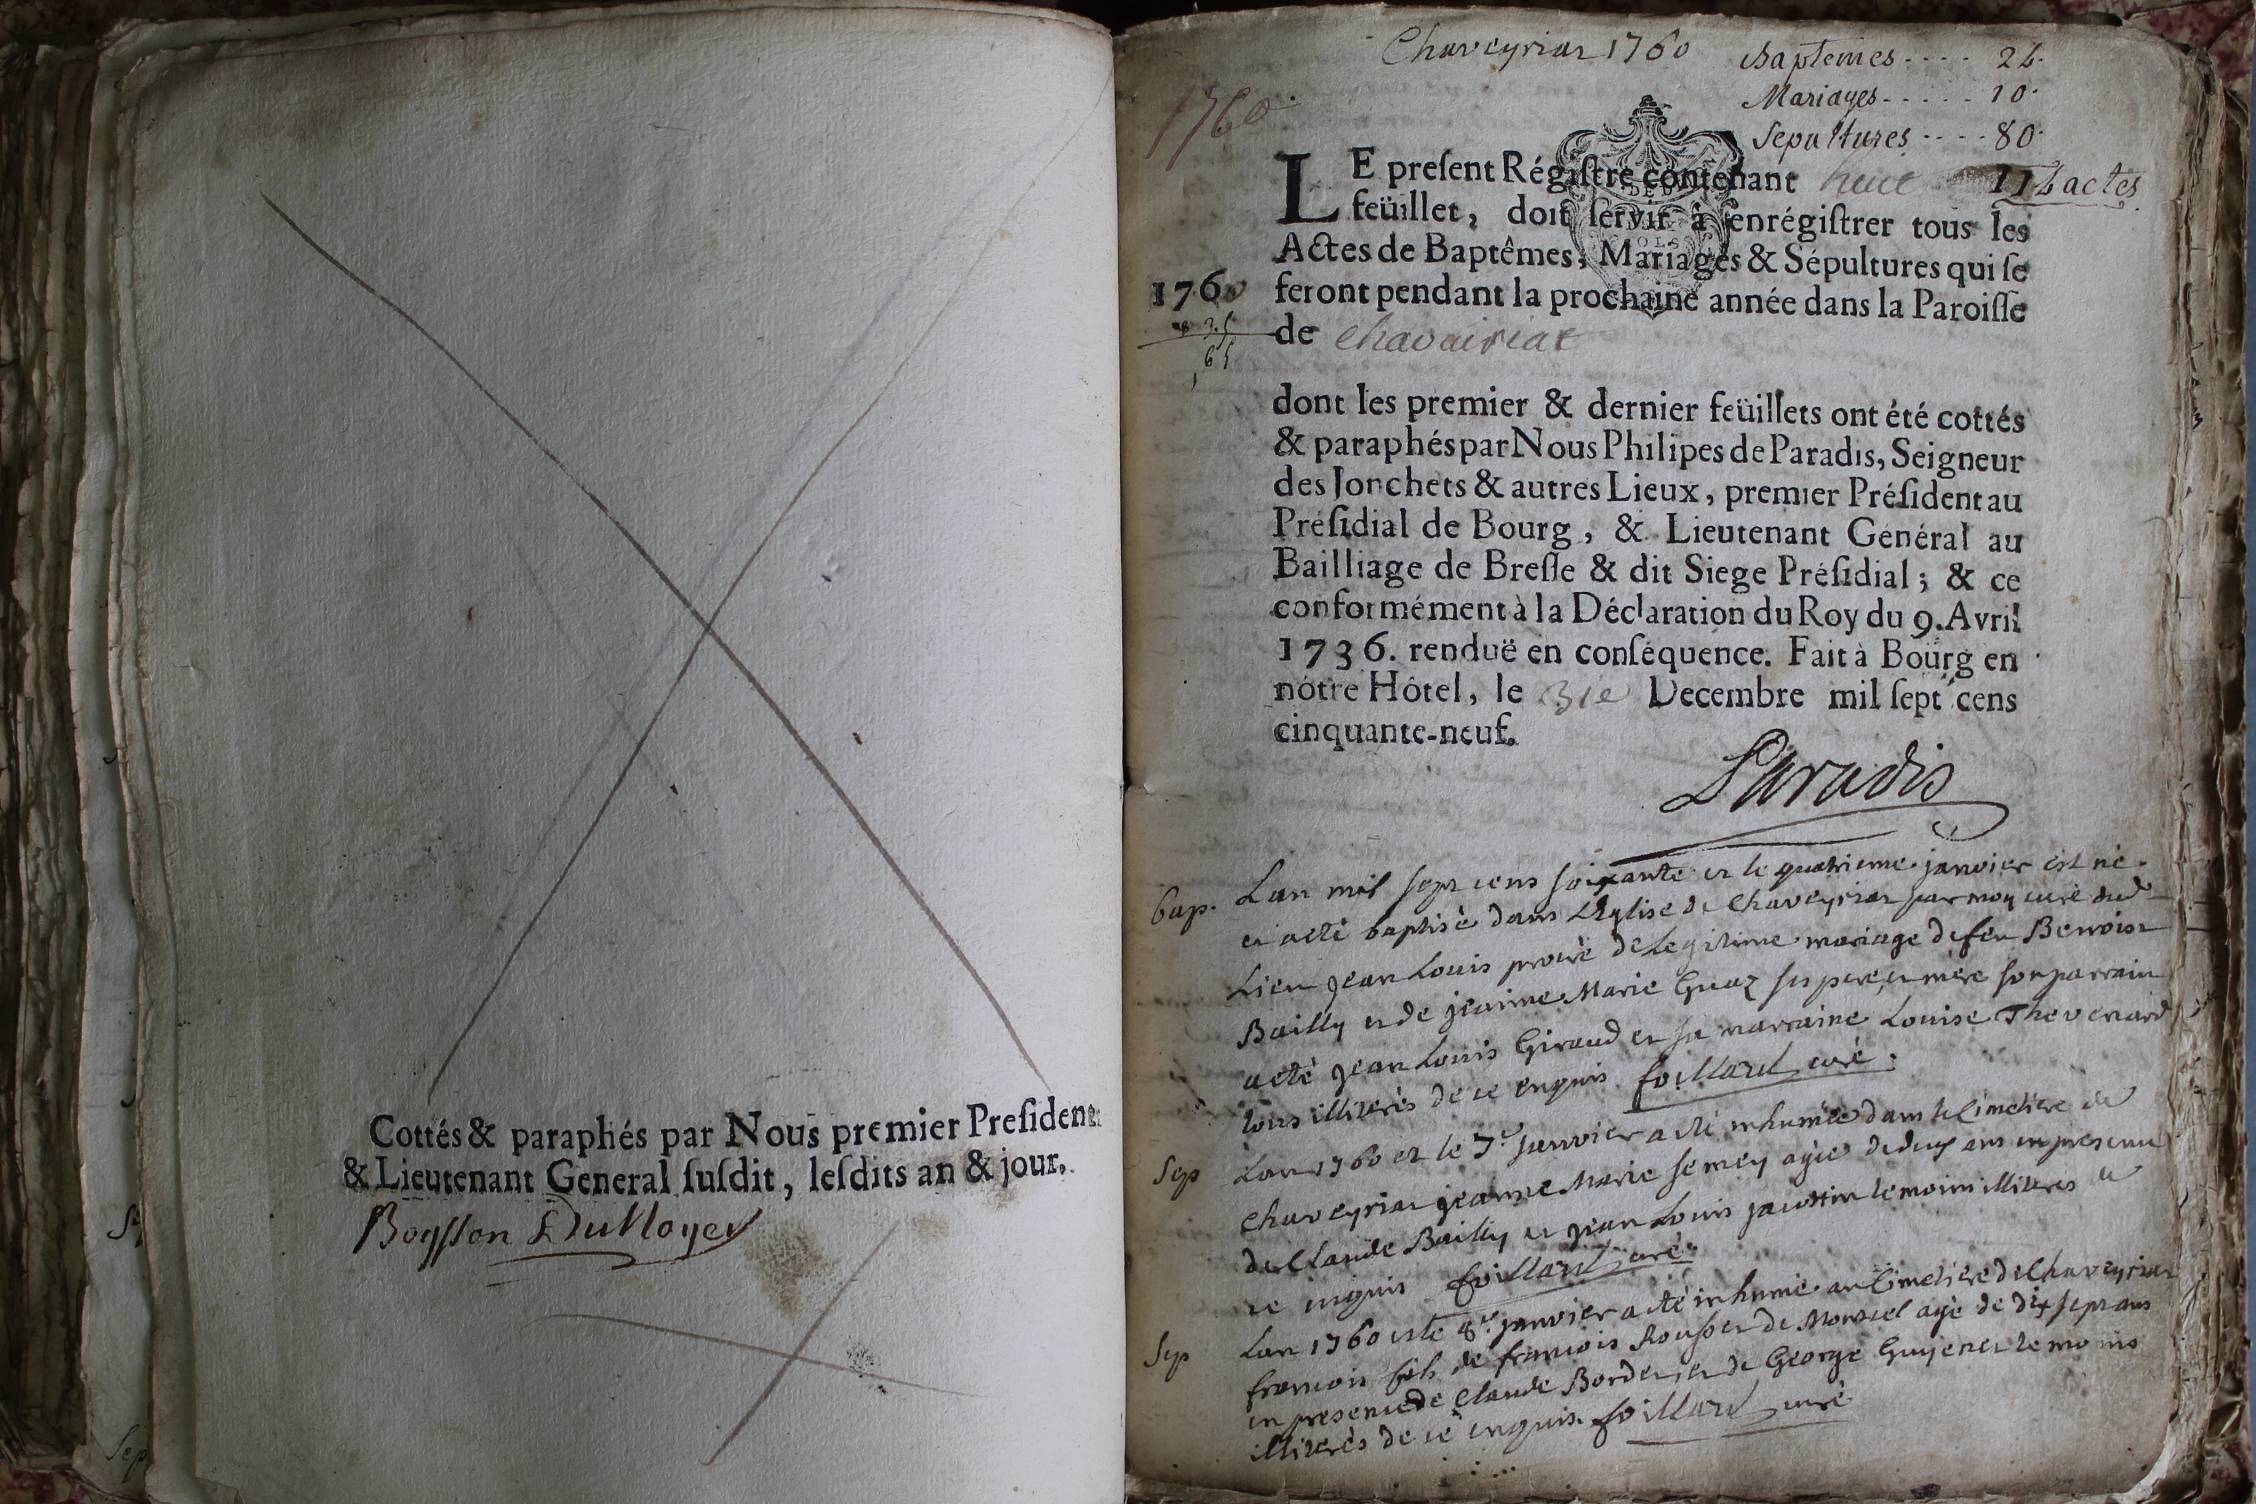 Cottés & paraphés par Nous premier Preſident
& Lieutenant General ſuſdit, leſdits an & jour.
Chaveyriat 1760
Baptemes .... 24.
Mariages ..... 10.
Sepultures .... 80.
114 actes
1760.
LE preſent Régiſtre contenant huit
feüillet, doit ſervir à enrégiſtrer tous les
Actes de Baptêmes, Mariages & Sépultures qui ſe
1760 feront pendant la prochaine année dans la Paroiſſe
de Chavairiat
dont les premier & dernier feüillets ont été cottés
& paraphés par Nous Philipes de Paradis, Seigneur
des Jonchets & autres Lieux, premier Préſident au
Préſidial de Bourg, & Lieutenant Général au
Bailliage de Breſſe & dit Siege Préſidial; & ce
conformément à la Déclaration du Roy du 9. Avril
1736. renduë en conſéquence. Fait à Bourg en
nótre Hôtel, le 31e Decembre mil ſept cens
cinquante-neuf.
Paradis
bap. Lan mil sept cens soixante et le quatrieme janvier est né
et a eté baptisé dans Léglise de Chaveyriat par moy curé dud
Lieu jean Louis procreé de Legitime mariage de feu Benoist
Bailly et de jeanne Marie Guaz ses pere et mere son parrain
a eté jean Louis Giraud et sa marraine Louise Thevenard
tous illiterés de ce enquis foillard curé.
Sep Lan 1760 et le 7e janvier a eté inhumée dans le cimetiere de
Chaveyriat jeanne Marie semey agée de deux ans en presence
de Claude Bailly et jean Louis temoins illiterés de
ce enquis foillard curé
Sep Lan 1760 et le 8e janvier a eté inhumé au cimetiere de Chaveyriat
francois fils de francois Rousset de Montcel agé de dix sept ans
en presence de Claude Bordet et de George temoins
illiterés de ce enquis. foillard curé